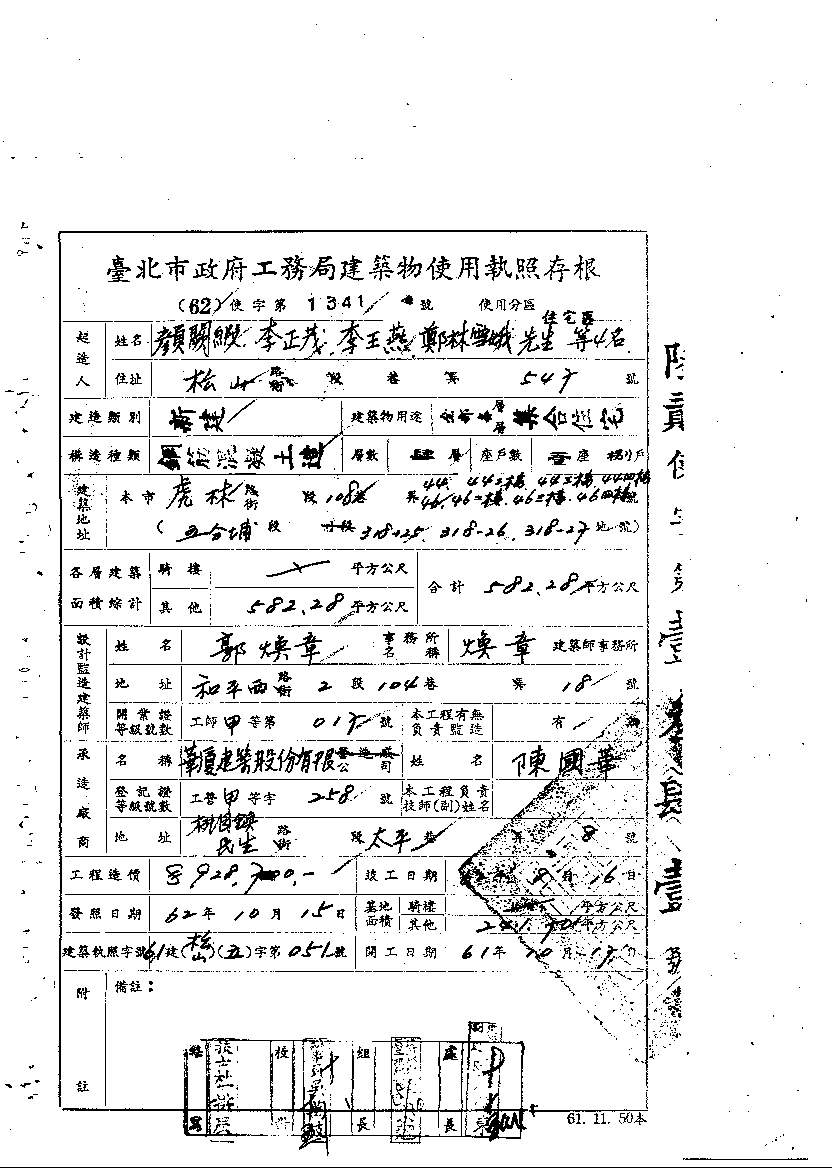 臺北市政府工務局建築物使用執照存根
(62)使字第1341號 使用分區 住宅區
起造人 姓名 顏關緞.李正茂.李王燕.鄭林雪娥 先生 等4名
住址 松山 路街 段 巷 弄 547 號
建造類別 新建 建築物用途 層 集合住宅
構造種類 鋼筋混凝土造 層數 肆 層 座戶數 壹座 捌戶
建築地址 本市 虎林 路街 段 108巷 弄 44. 44二樓. 44三樓. 44四樓 46. 46二樓. 46三樓. 46四樓 號
( 五分埔 段 小段 318-25, 318-26, 318-27 地號)
各層建築面積綜計 騎樓 平方公尺 合計 582.28 平方公尺
其他 582.28 平方公尺
設計監造建築師 姓名 郭煥章 事務所名稱 煥章 建築師事務所
地址 和平西 路街 2 段 104 巷 弄 18 號
開業證等級號數 工師 甲 等第 017 號 本工程有無負責監造 有 無
承造廠商 名稱 華廈建築股份有限 營造廠公司 姓名 陳國華
登記證等級號數 工營 甲 等字 258 號 本工程負責技師(副)姓名
地址 桃園鎮民生 路街 段 太平 巷 弄 8 號
工程造價 928,700.- 竣工日期 62年 8月 16日
發照日期 62年 10月 15日 基地面積 騎樓 平方公尺
其他 平方公尺
建築執照字號 61建(松山)(五)字第051號 開工日期 61年 10月 17日
附註 備註:
繕寫 校對 組長 處長
61. 11. 50本